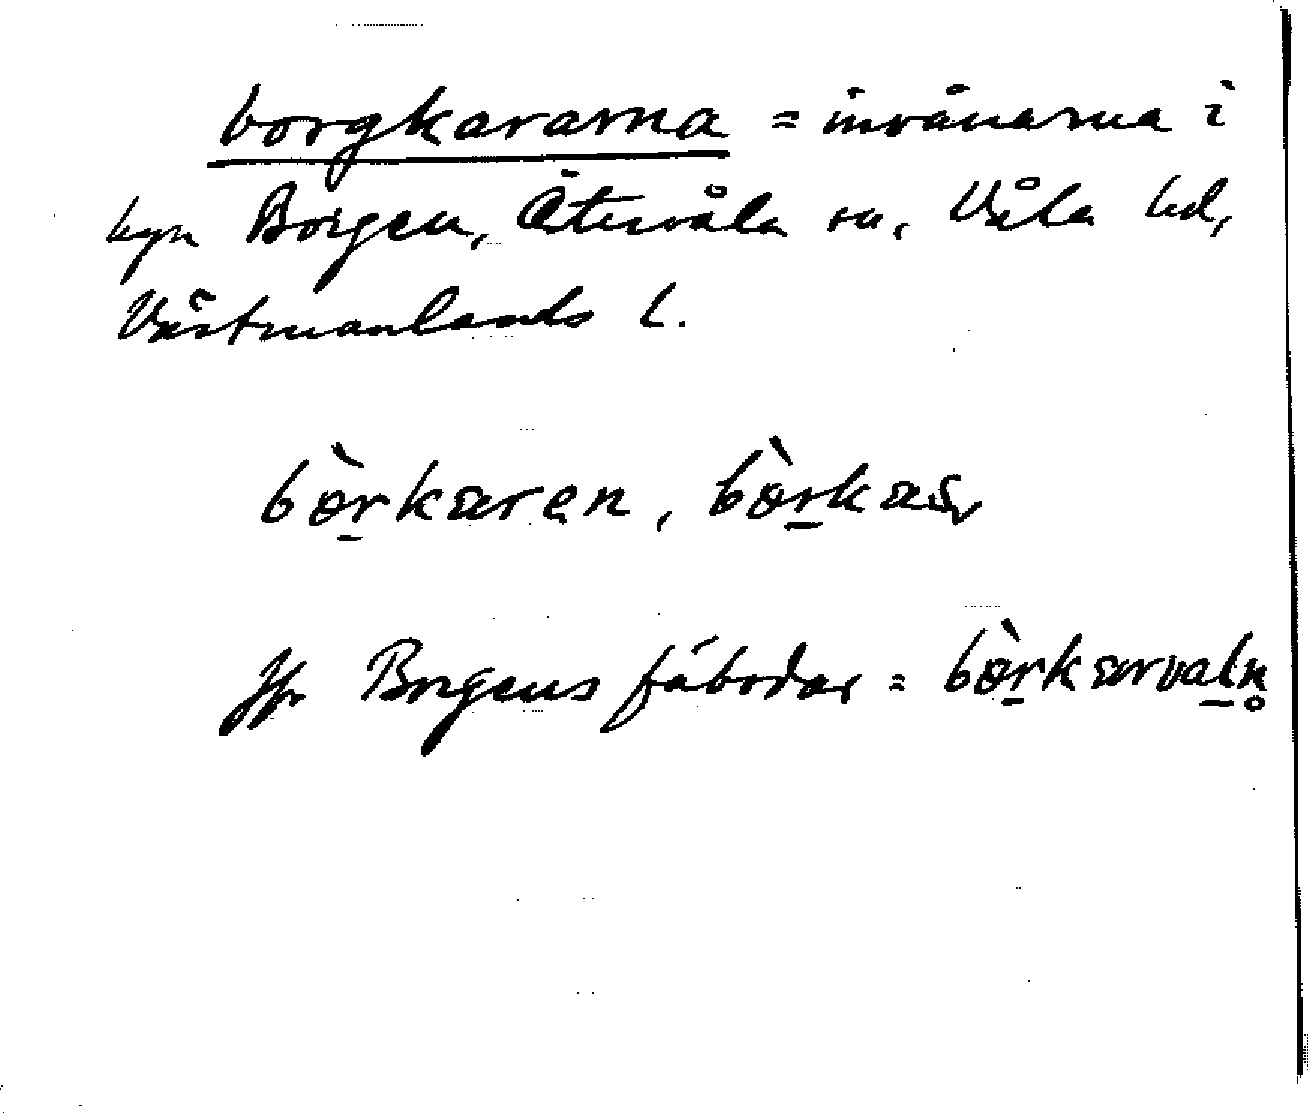 borgkararna = invånarna i
byn Borgen, Östervåla sn, Våla hd,
Västmanlands l.
bə̀rkaren, bə̀rka
Jfr Borgens fäbodar = bə̀rkarvaln̥